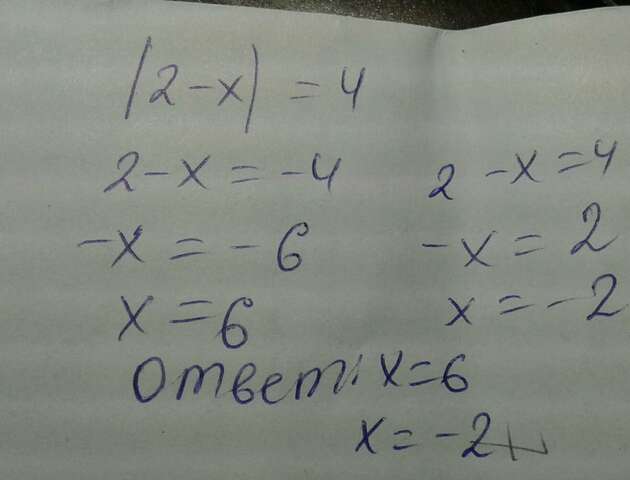 |2-x| = 4
2-x = -4
-x = -6
x = 6
2 -x = 4
-x = 2
x = -2
Ответ: x=6
x=-2